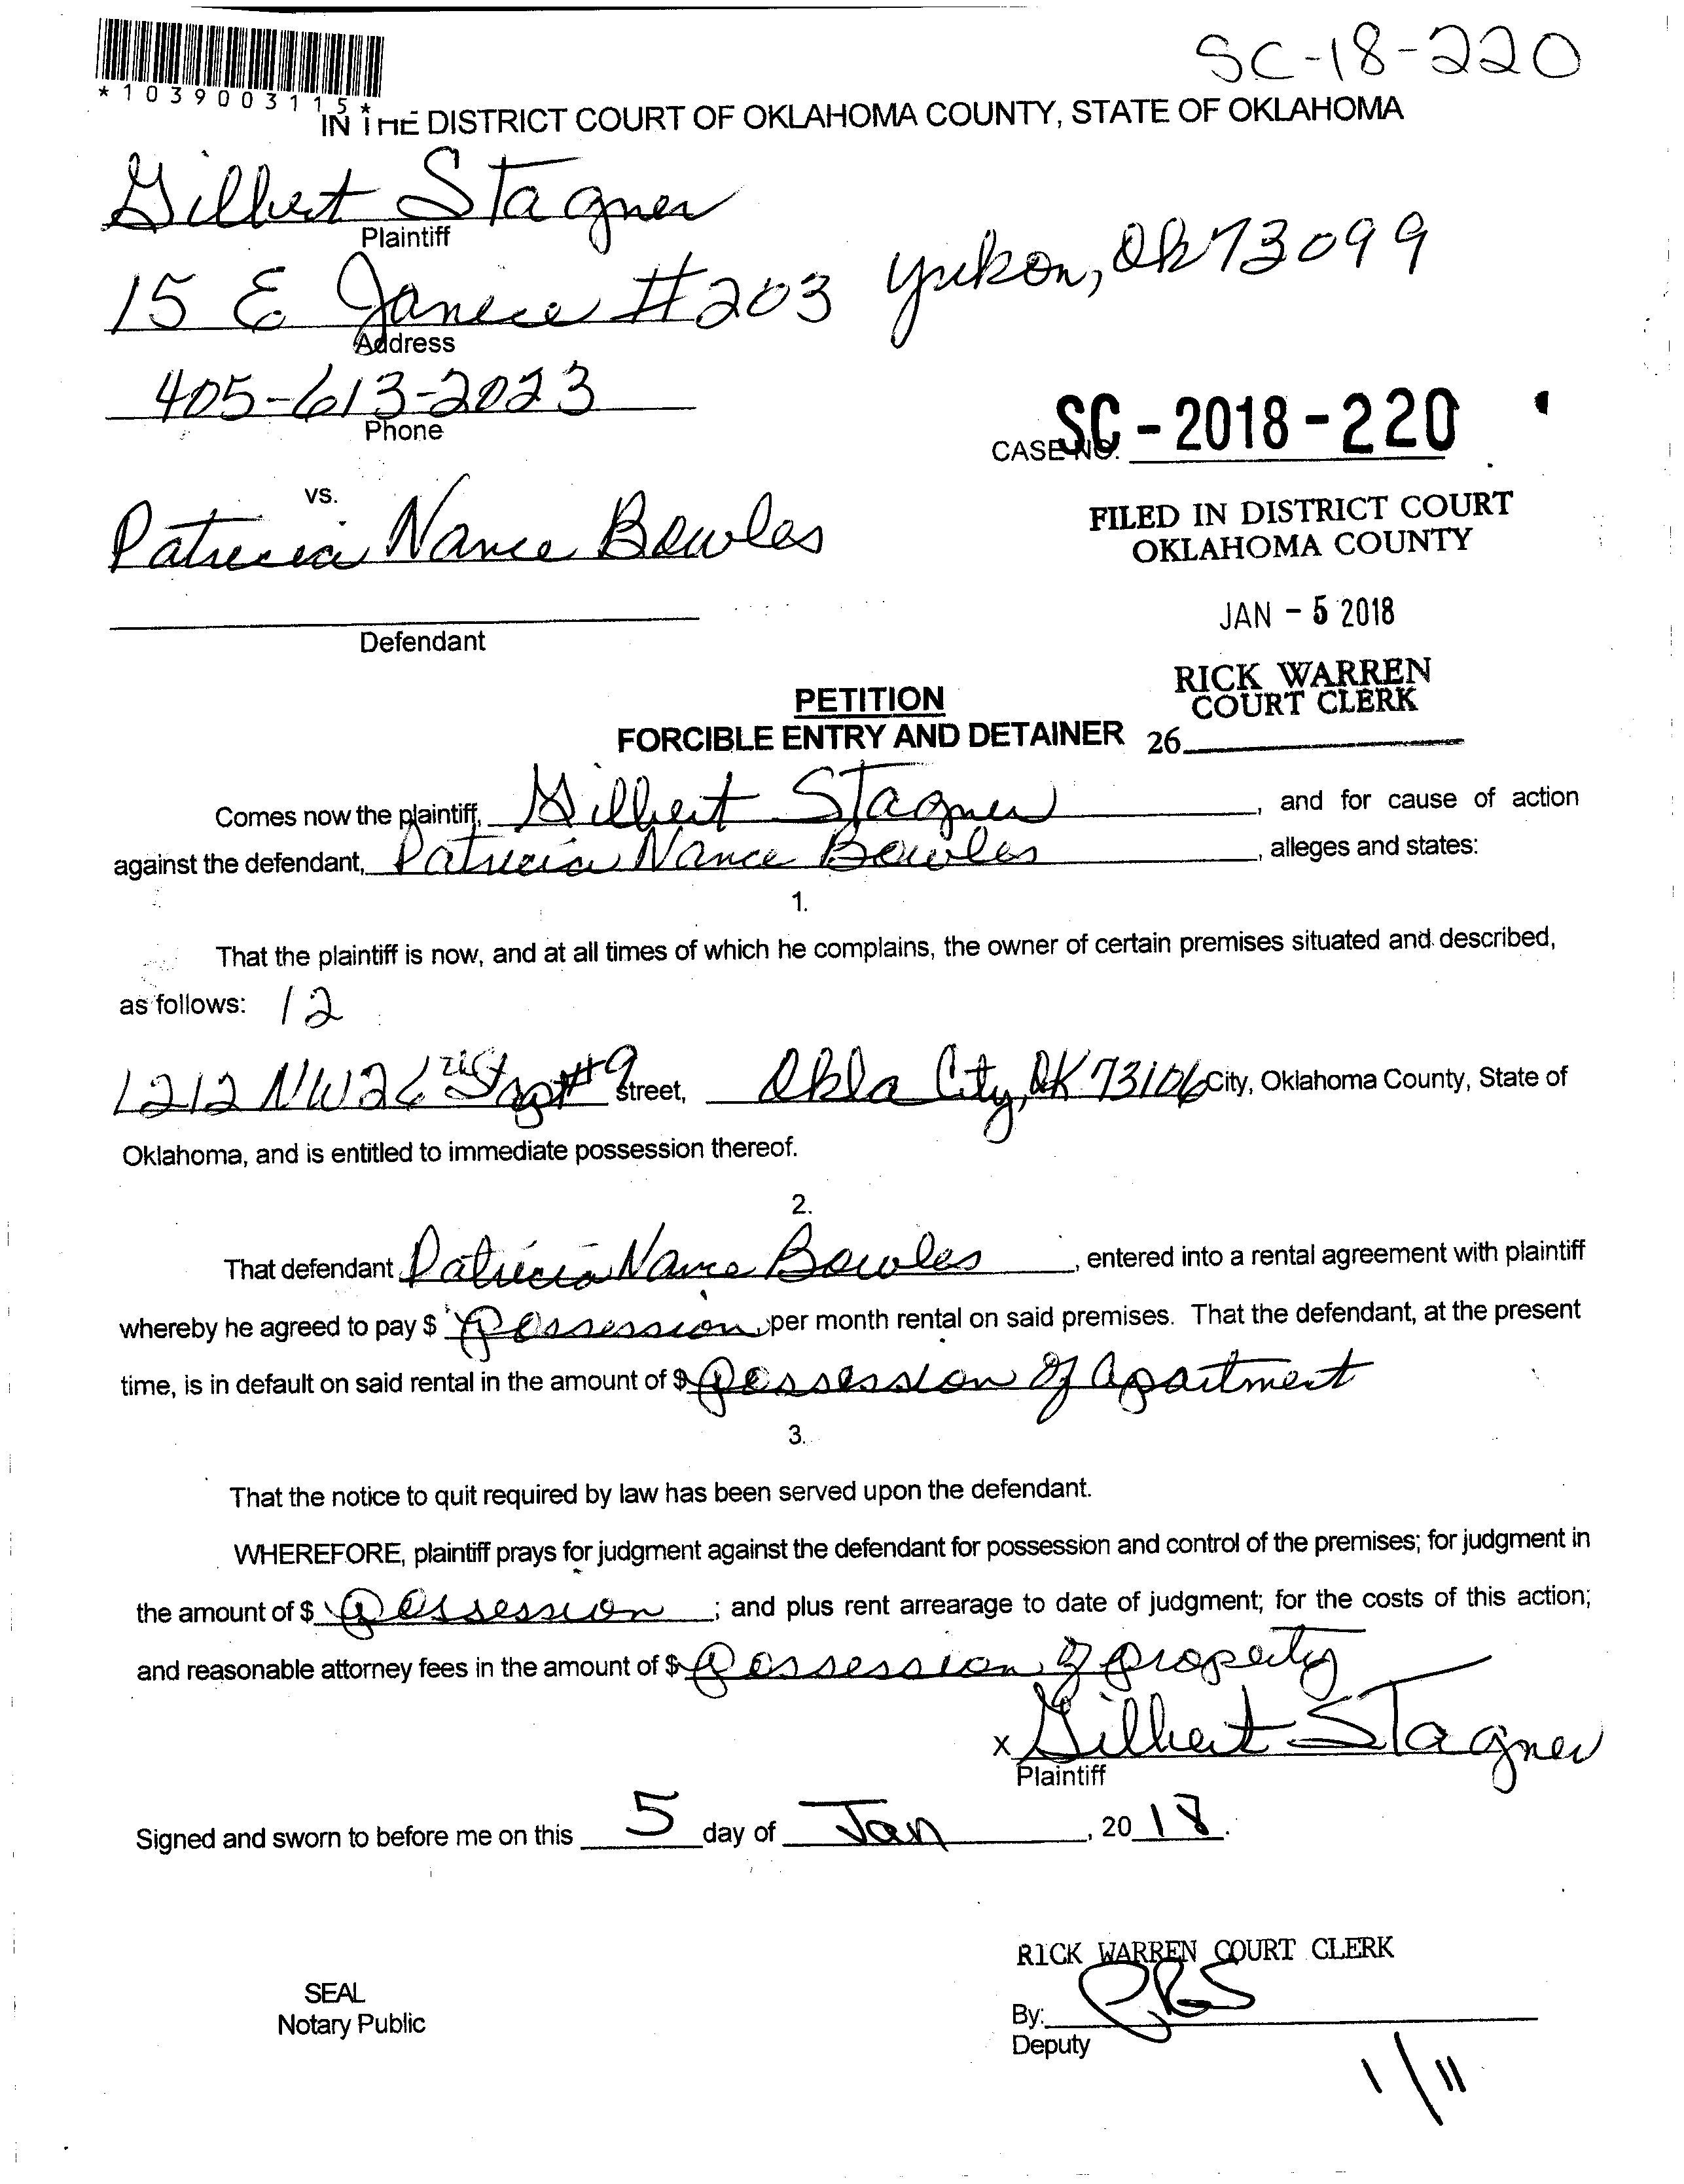 SC-18-220
*1039003115*
IN THE DISTRICT COURT OF OKLAHOMA COUNTY, STATE OF OKLAHOMA
Gilbert Stagner
Plaintiff
15 E Janice #203 Yukon, Ok 73099
Address
405-613-2023
Phone
CASE NO. SC-2018-220
vs.
Patricia Nance Bowles
FILED IN DISTRICT COURT
OKLAHOMA COUNTY
JAN - 5 2018
Defendant
RICK WARREN
COURT CLERK
PETITION
FORCIBLE ENTRY AND DETAINER 26
Comes now the plaintiff, Gilbert Stagner, and for cause of action
against the defendant, Patricia Nance Bowles, alleges and states:
1.
That the plaintiff is now, and at all times of which he complains, the owner of certain premises situated and described,
as follows: 12
1212 NW 26th St apt #9 street, Okla City, OK 73106 City, Oklahoma County, State of
Oklahoma, and is entitled to immediate possession thereof.
2.
That defendant Patricia Nance Bowles, entered into a rental agreement with plaintiff
whereby he agreed to pay $ possession per month rental on said premises. That the defendant, at the present
time, is in default on said rental in the amount of $ possession of apartment
3.
That the notice to quit required by law has been served upon the defendant.
WHEREFORE, plaintiff prays for judgment against the defendant for possession and control of the premises; for judgment in
the amount of $ possession; and plus rent arrearage to date of judgment; for the costs of this action;
and reasonable attorney fees in the amount of $ possession of property
x Gilbert Stagner
Plaintiff
Signed and sworn to before me on this 5 day of Jan, 2018.
RICK WARREN COURT CLERK
SEAL
Notary Public
By:
Deputy
1/11